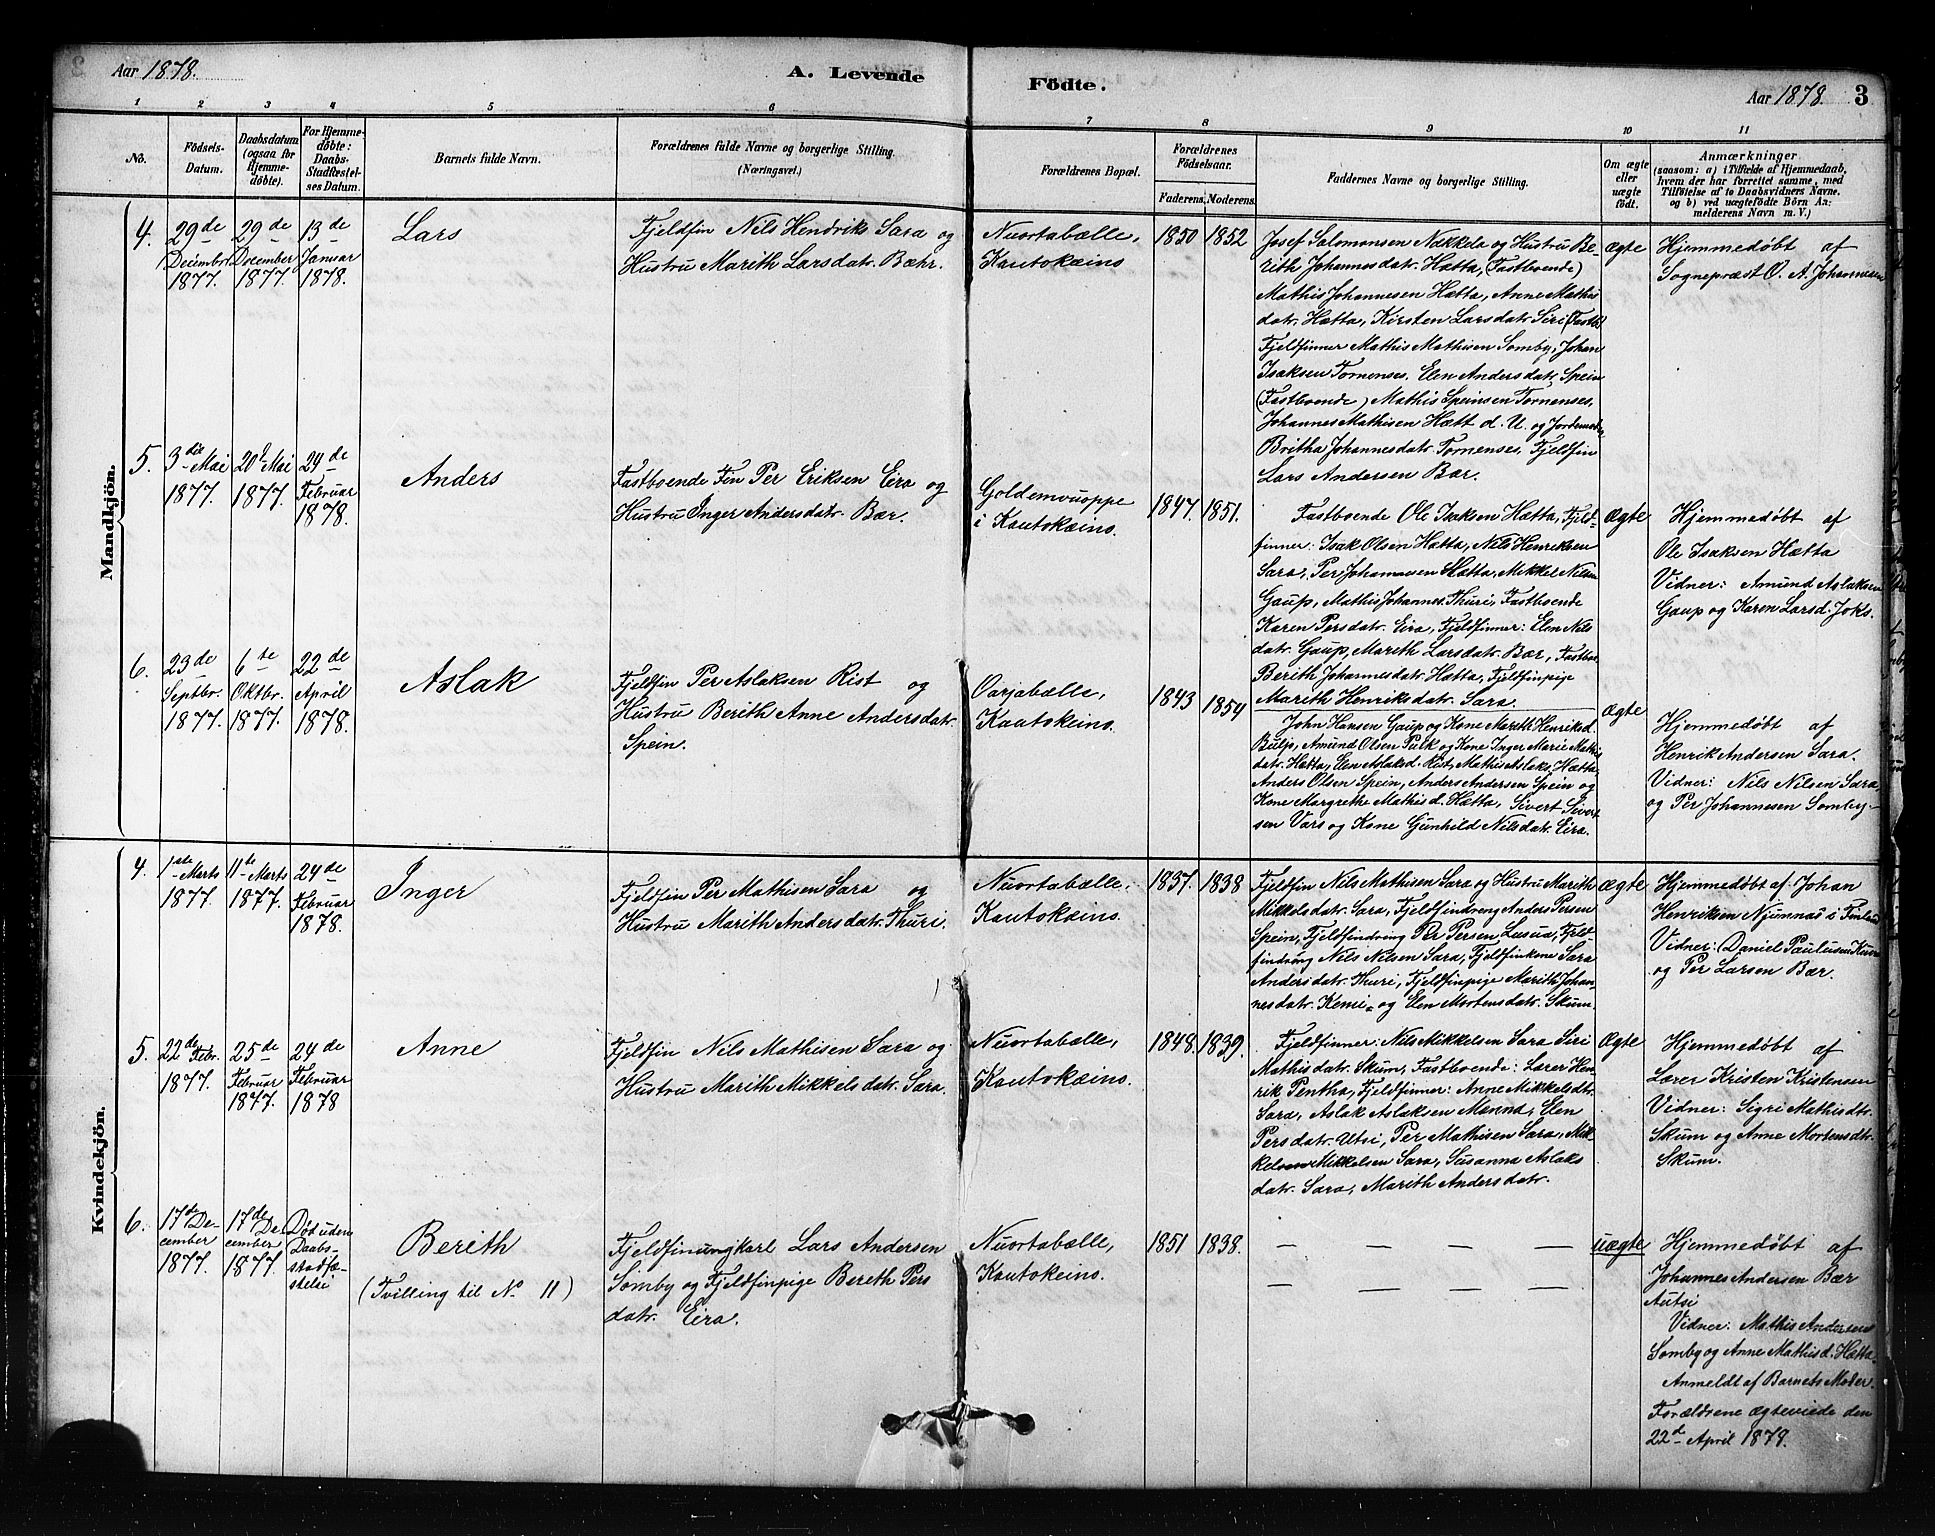 Aar 1878.
A. Levende
Födte.
Aar 1878. 3
1 2 3 4 5 6 7 8 9 10 11
No.
Födsels-
Datum.
Daabsdatum
(ogsaa for
Hjemme-
döbte).
For Hjemme-
döbte:
Daabs-
Stadfæstel-
ses Datum.
Barnets fulde Navn.
Forældrenes fulde Navne og borgerlige Stilling.
(Næringsvei.)
Forældrenes Bopæl.
Forældrenes
Födselsaar.
Faderens. Moderens.
Faddernes Navne og borgerlige Stilling.
Om ægte
eller
uægte
födt.
Anmærkninger
(saasom: a) i Tilfælde af Hjemmedaab,
hvem der har forrettet samme, med
Tilföielse af to Daabsvidners Navne,
og b) ved uægtefödte Börn An-
melderens Navn m. V.)
Mandkjön.
4.
29de
December
1877.
29de
December
1877.
13de
Januar
1878.
Lars
Fjeldfin Nils Hendrik Sara og
Hustru Marith Larsdatr. Bæhr.
Nuortabælle,
Kautokeino
1850 1852
Josef Salomonsen Nækkela og Hustru Be-
rith Johannesdatr. Hætta, (Fastboende)
Mathis Johannesen Hætta, Anne Mathis
datr. Hætta, Kirsten Larsdatr. Siri (Fastb.)
Fjeldfinner Mathis Mathisen Somby, Johan
Isaksen Tornenses. Elen Andersdatr. Spein
(Fastboende) Mathis Speinsen Tornenses,
Johannes Mathisen Hætt d. U. og Jordemoder
Britha Johannesdatr. Tornenses, Fjeldfin
Lars Andersen Bær.
ægte
Hjemmedøbt af
Sognepræst O. A. Johannesen
5.
3die Mai
1877.
20de Mai
1877.
24de
Februar
1878.
Anders
Fastboende Fin Per Eriksen Eira og
Hustru Inger Andersdatr. Bær.
Goldemvuoppe
i Kautokeino.
1847. 1851.
Fastboende Ole Isaksen Hætta, Fjeld-
finner: Isak Olsen Hætta, Nils Henriksen
Sara, Per Johannesen Hætta, Mikkel Nilsen
Gaup, Mathis Johannes. Thuri, Fastboende
Karen Persdatr. Eira, Fjeldfinner: Elen Nils
datr. Gaup, Marith Larsdatr. Bær, Fastboe.
Berith Johannesdatr. Hætta, Fjeldfinpige
Marith Henriksdatr. Sara.
Ægte
Hjemmedøbt af
Ole Isaksen Hætta
Vidner: Amund Aslaksen
Gaup og Karen Larsd. Joks.
6.
23de
Septbr.
1877.
6te
Oktbr.
1877.
22de
April
1878.
Aslak
Fjeldfin Per Aslaksen Rist og
Hustru Berith Anne Andersdatr.
Spein.
Oarjabælle,
Kautokeino.
1843 1854
John Hansen Gaup og Kone Marith Henriksd.
Buljo, Amund Olsen Pulk og Kone Inger Marie Mathis
datr. Hætta, Elen Aslaksd. Rist, Mathis Aslaks. Hætta,
Anders Olsen Spein, Anders Andersen Spein og
Kone Margrethe Mathisd. Hætta, Sivert Sivert
sen Vars og Kone Gunhild Nilsdatr. Eira.
Ægte
Hjemmedøbt af
Henrik Andersen Sara.
Vidner: Nils Nilsen Sara,
og Per Johannesen Somby.
Kvindekjön.
4.
1ste Marts
1877.
11te Marts
1877.
24de
Februar
1878.
Inger
Fjeldfin Per Mathisen Sara og
Hustru Marith Andersdatr. Thuri.
Nuortabælle,
Kautokeino.
1837. 1838
Fjeldfin Nils Mathisen Sara og Hustru Marith
Mikkelsdatr. Sara, Fjeldfindreng Anders Persen
Spein, Fjeldfindreng Per Persen Lusua, Fjeld-
findreng Nils Nilsen Sara, Fjeldfinkone Sara
Andersdatr. Thuri, Fjeldfinpige Marith Johan
nesdatr. Kemi, og Elen Mortensdatr. Skum.
ægte
Hjemmedøbt af Johan
Henriksen Njumnas i Finland
Vidner: Daniel Paulusen
og Per Larsen Bær.
5.
22de Febr.
1877.
25de
Februar
1877.
24de
Februar
1878
Anne
Fjeldfin Nils Mathisen Sara og
Hustru Marith Mikkelsdatr. Sara.
Nuortabælle,
Kautokeino.
1848. 1839.
Fjeldfinner: Nils Mikkelsen Sara Siri
Mathisdatr. Skum, Fastboende: Lærer Hen-
rik Pentha, Fjeldfinner: Anne Mikkelsdtr.
Sara, Aslak Aslaksen Manna, Elen
Persdatr. Utsi, Per Mathisen Sara, Mik-
kel Mikkelsen Sara, Susanna Aslaks
datr. Sara, Marith Andersdatr.
Ægte
Hjemmedøbt af
Lærer Kristen Kristensen
Vidner: Sigri Mathisdtr.
Skum og Anne Mortensdtr.
Skum.
6.
17de De-
cember
1877.
17de De-
cember
1877.
Død uden
Daabs-
stadfæ-
stelse
Berith
(Tvilling til No 11)
Fjeldfinungkarl Lars Andersen
Somby og Fjeldfinpige Bereth Pers
datr. Eira.
Nuortabælle,
Kautokeino.
1851 1838.
— — — —
— — — —
uægte
Hjemmedøbt af
Johannes Andersen Bær
Autsi
Vidner: Mathis Andersen
Somby og Anne Mathisd. Hætta.
Anmeldt af Barnets Moder.
Forældrene ægteviede den
22de April 1878.